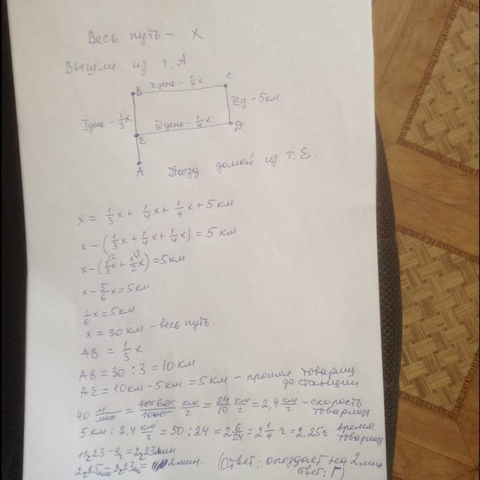 Весь путь – x
Вышли из т. А
B II день – 1/4 x C
I день – 1/3 x
III д – 5км
E IV день – 1/4 x D
A
Поезд домой из т. Е.
x = 1/3 x + 1/4 x + 1/4 x + 5 км
x – (1/3 x + 1/4 x + 1/4 x) = 5 км
x – (1/3 x + 1/2 x) = 5 км
x – 5/6 x = 5 км
1/6 x = 5 км
x = 30 км – весь путь.
AB = 1/3 x
AB = 30 : 3 = 10 км
AE = 10 км – 5 км = 5 км – прошел товарищ до станции
40 м/мин = 40·60/1000 км/ч = 24/10 км/ч = 2,4 км/ч – скорость товарища
5 км : 2,4 км/ч = 50 : 24 = 2 2/24 = 2 1/4 ч = 2,25ч время товарища
11ч 23 – 9ч = 2ч 23мин
2ч 25 – 2ч 23 = 2 мин. (Ответ: опоздает на 2 мин
ответ: Г)